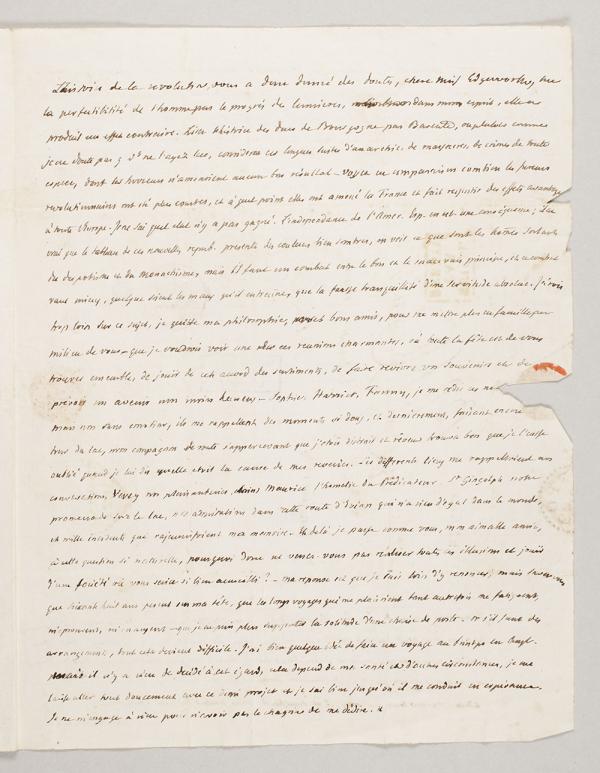 L'histoire de la révolution, vous a donc donné des doutes, chere Miss Edgeworth, sur
la perfectibilité de l'homme par le progrès des lumieres, dans mon esprit, elle a
produit un effet contraire. Lisez l'histoire des ducs de Bourgogne par Barante, ou plutot comme
je ne doute pas q vs ne l'ayez lue, considérez ces longues suites d'anarchie de massacres de crimes de toute
espece, dont les horreurs n'amenoient aucun bon résultat - voyez en comparaison combien les fureurs
revolutionnaires ont été plus courtes, et à quel point elles ont amené la France et fait rejaillir des effets avantageux
à toute l'Europe. Je ne sai quel etat n'y a pas gagné. L'indépendance de l'Amer. Esp. en est une conséquence; Il est
vrai que le tableau de ces nouvelles repub. présente des couleurs bien sombres, on voit ce que sont les
du despotisme et du monachisme, mais il faut un combat entre le bon et le mauvais principe, et ce combat
vaut mieux, quelque soient les maux qu'il entraine, que la fausse tranquilité d'une servitude absolue. J'irois
trop loin sur ce sujet, je quitte ma philosophie, bons amis, pour me mettre plus en famille au
milieu de vous - que je voudrois voir une de ces reunions charmantes, où toute la fête est de vous
trouver ensemble, de jouir de cet accord des sentiments, de faire revivre vos souvenirs et de
prévoir un avenir non moins heureux - Sophie, Harriet, Fanny, je me redis ces
noms non sans emotion, ils me rappellent des moments si doux, et dernierement, faisant encore
tour du lac, mon compagnon de route s'appercevant que j'etois distrait et rêveur trouva bon que je l'eusse
oublié quand je lui dis quelle etoit la cause de mes reveries. Ces differents lieux me rappelloient nos
conversations, Vevey nos plaisanteries, St Maurice l'homelie du Prédicateur. St Gingolph notre
promenade sur le lac, nos admirations dans cette route d'Evian qui n'a rien d'egal dans le monde,
et mille incidents que rajeunissoient ma memoire. De là je passe comme vous, mon aimable amie,
à cette question si naturelle, pourquoi donc ne venez-vous pas réaliser toutes ces illusions et jouir
d'une société où vous seriez si bien accueilli? - ma reponse est que je suis loin d'y renoncer, mais
que soixante huit ans pesent sur ma tête, que les longs voyages qui me plaisoient tant autrefois me fatiguent,
m'ennuyent, - que je ne puis plus supporter la solitude d'une chaise de poste. et s'il faut des
arrangements, tout cela devient difficile. J'ai bien quelque idée de faire un voyage au printems en Angl.
mais il n'y a rien de décidé à cet égard, cela depend de ma santé et d'autres circonstances, je me
laisse aller tout doucement avec ce demi projet et je sai bien jusqu'où il me conduit en espérance.
Je ne m'engage à rien pour n'avoir pas le chagrin de me dédire.